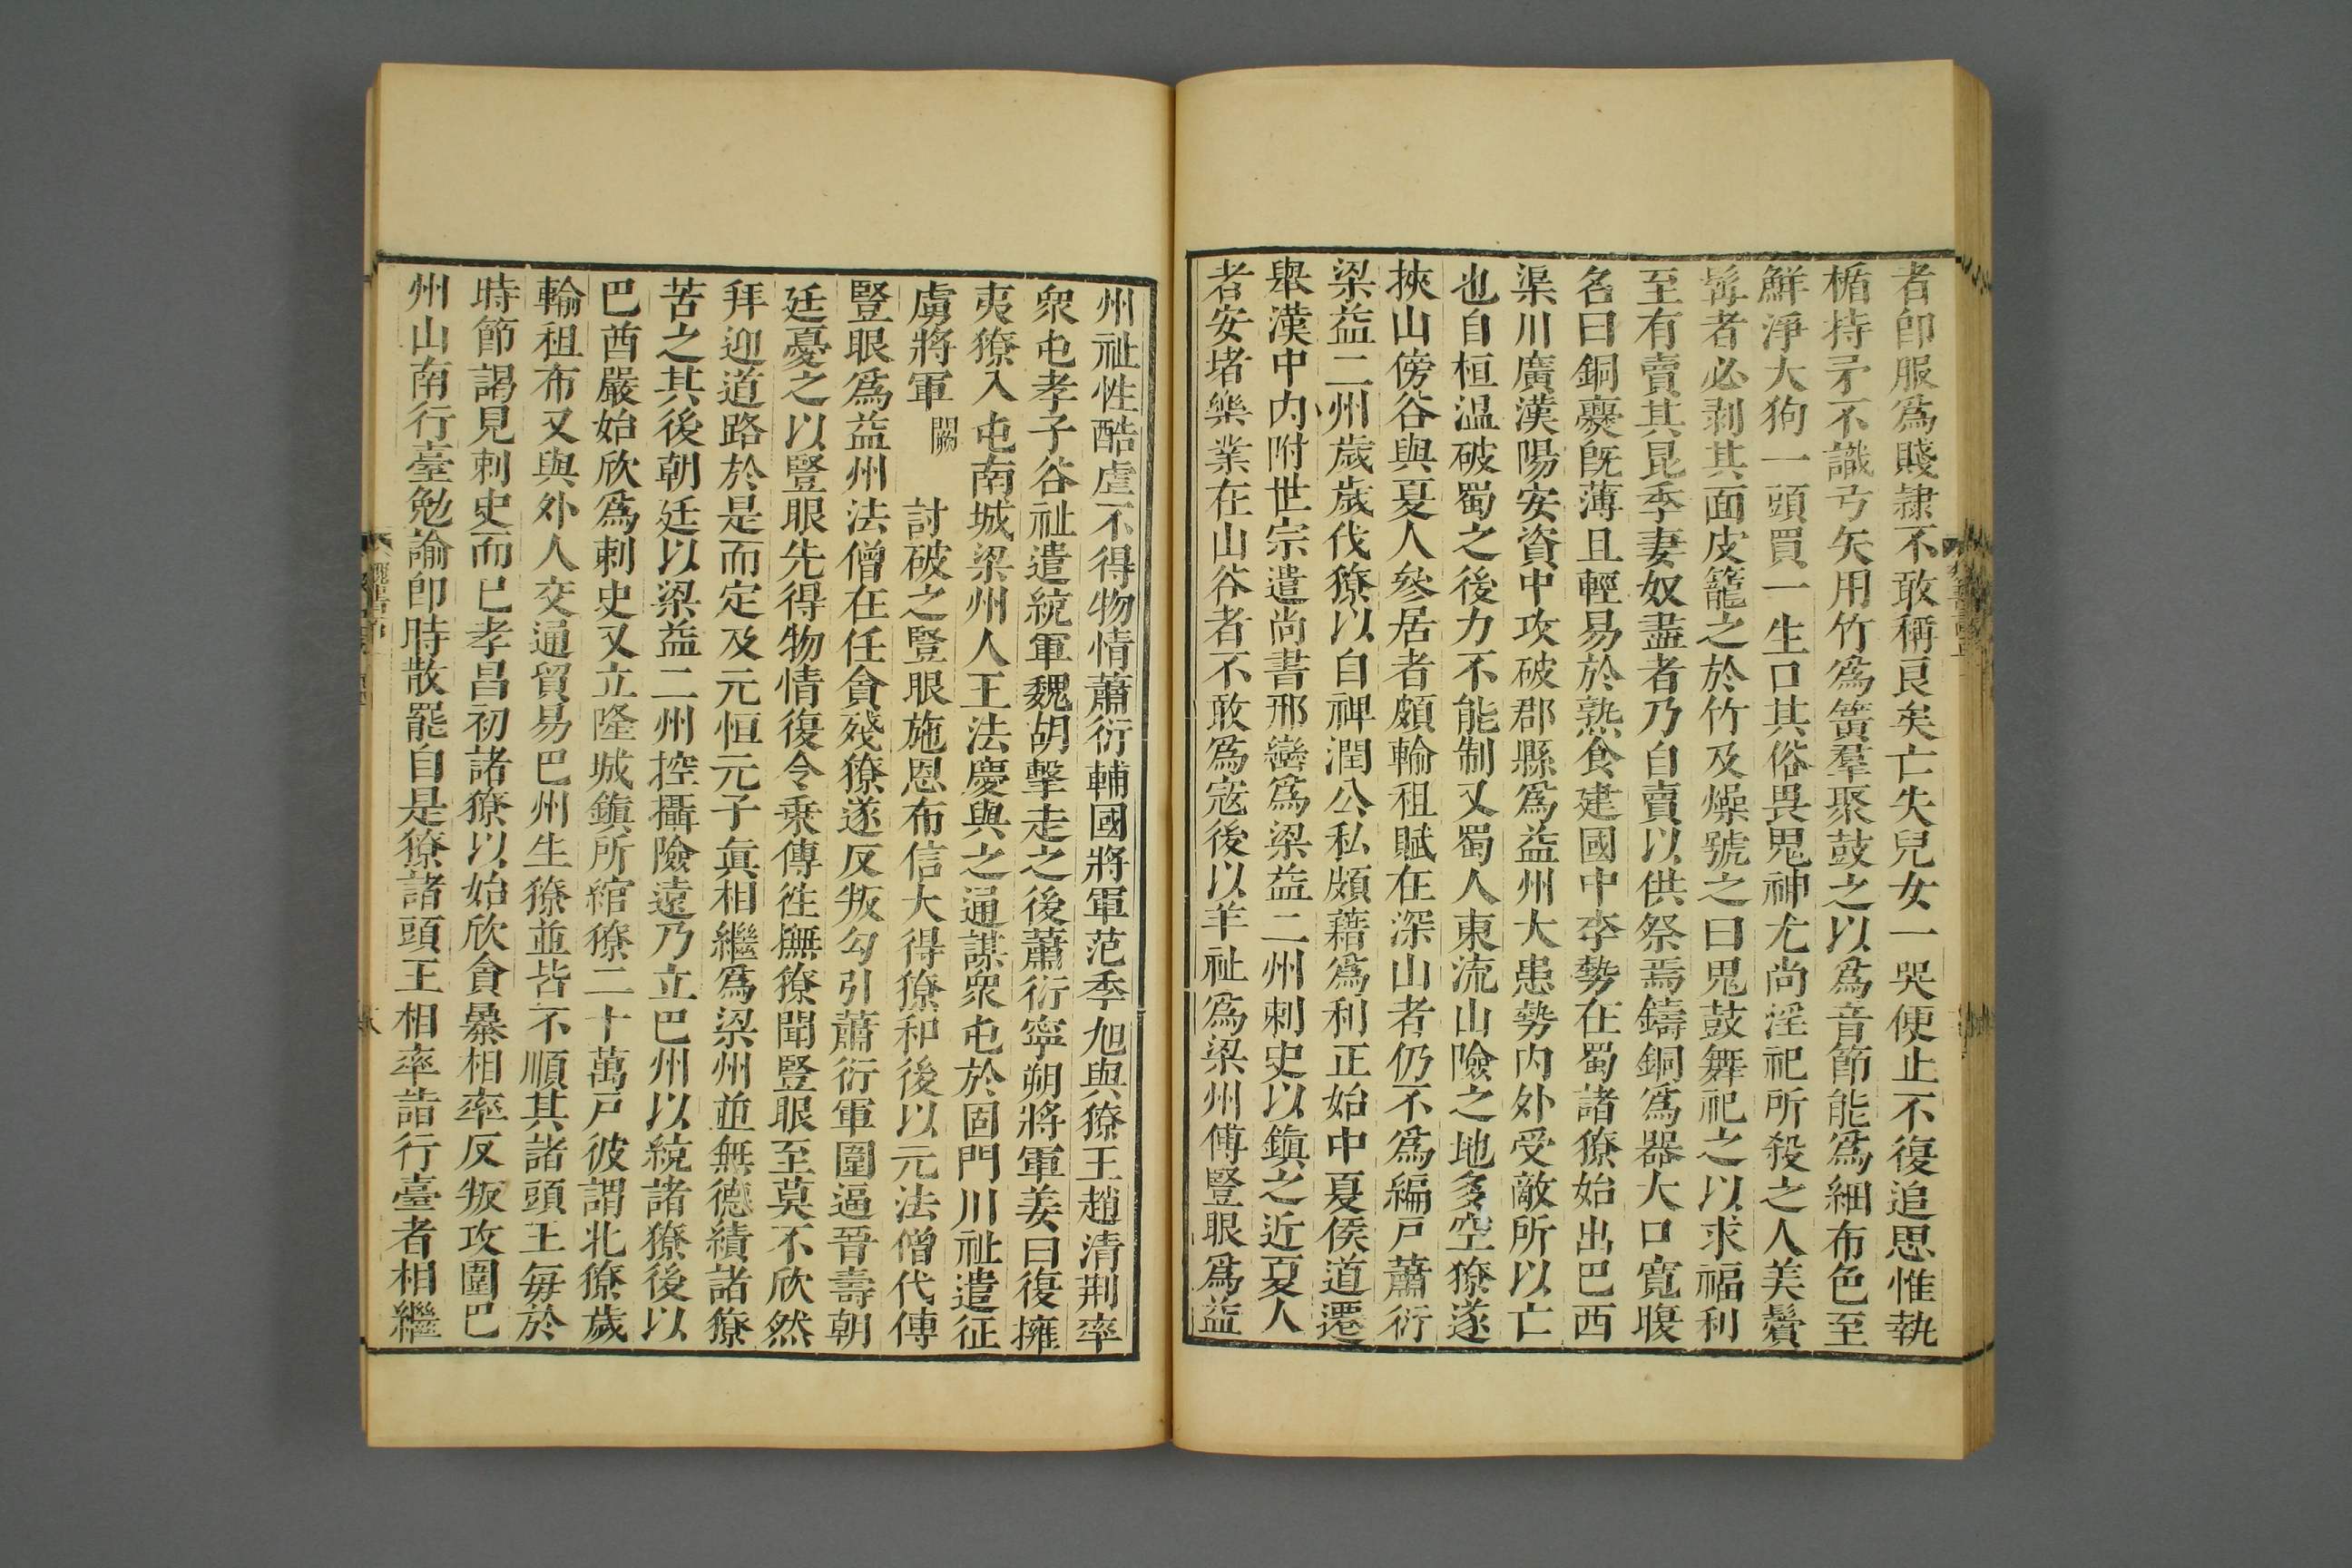 者卽服爲賤隷不敢稱良矣亡失兒女一哭便止不復追思惟執
楯持矛不識弓矢用竹爲簧羣聚鼓之以爲音節能爲細布色至
鮮淨大狗一頭買一生口其俗畏鬼神尤尚淫祀所殺之人美鬢
髯者必剥其面皮籠之於竹及燥號之曰鬼鼓舞祀之以求福利
至有賣其昆季妻奴盡者乃自賣以供祭焉鑄銅爲器大口寛腹
名曰銅爨旣薄且輕易於熟食建國中李勢在蜀諸獠始出巴西
渠川廣漢陽安資中攻破郡縣爲益州大患勢內外受敵所以亡
也自桓温破蜀之後力不能制又蜀人東流山險之地多空獠遂
挾山傍谷與夏人參居者頗輸租賦在深山者仍不爲編戶蕭衍
梁益二州歲歲伐獠以自裨潤公私頗藉爲利正始中夏侯道遷
舉漢中內附世宗遣尚書邢巒爲梁益二州刺史以鎭之近夏人
者安堵樂業在山谷者不敢爲寇後以羊祉爲梁州傅豎眼爲益
州祉性酷虐不得物情蕭衍輔國將軍范季旭與獠王趙清荆率
衆屯孝子谷祉遣統軍魏胡擊走之後蕭衍寧朔將軍姜白復擁
夷獠入屯南城梁州人王法慶與之通謀衆屯於固門川祉遣征
虜將軍闕討破之豎眼施恩布信大得獠和後以元法僧代傅
豎眼爲益州法僧在任貪殘獠遂反叛勾引蕭衍軍圍逼晉壽朝
廷憂之以豎眼先得物情復令乗傳徃撫獠聞豎眼至莫不欣然
拜迎道路於是而定及元恒元子眞相繼爲梁州並無德績諸獠
苦之其後朝廷以梁益二州控攝險遠乃立巴州以統諸獠後以
巴酋嚴始欣爲刺史又立隆城鎭所綰獠二十萬戶彼謂北獠歲
輸租布又與外人交通貿易巴州生獠並皆不順其諸頭王每於
時節謁見刺史而已孝昌初諸獠以始欣貪暴相率反叛攻圍巴
州山南行臺勉諭卽時散罷自是獠諸頭王相率詣行臺者相繼